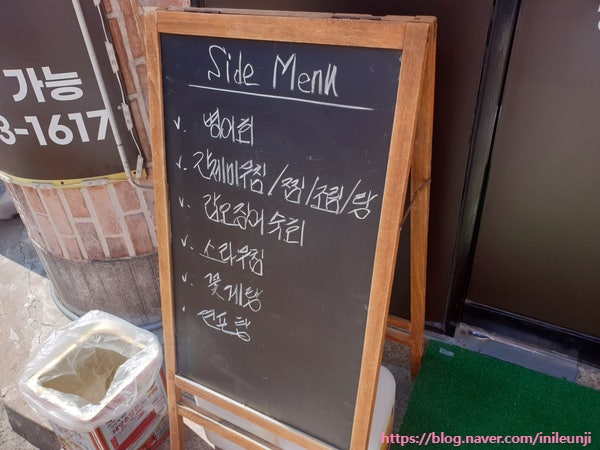 가능
3-1617
Side Menu
v. 병어회
v. 간재미무침/찜/조림/탕
v. 갑오징어숙회
v. 소라무침
v. 꽃게탕
. 연포탕
https://blog.naver.com/inileunji